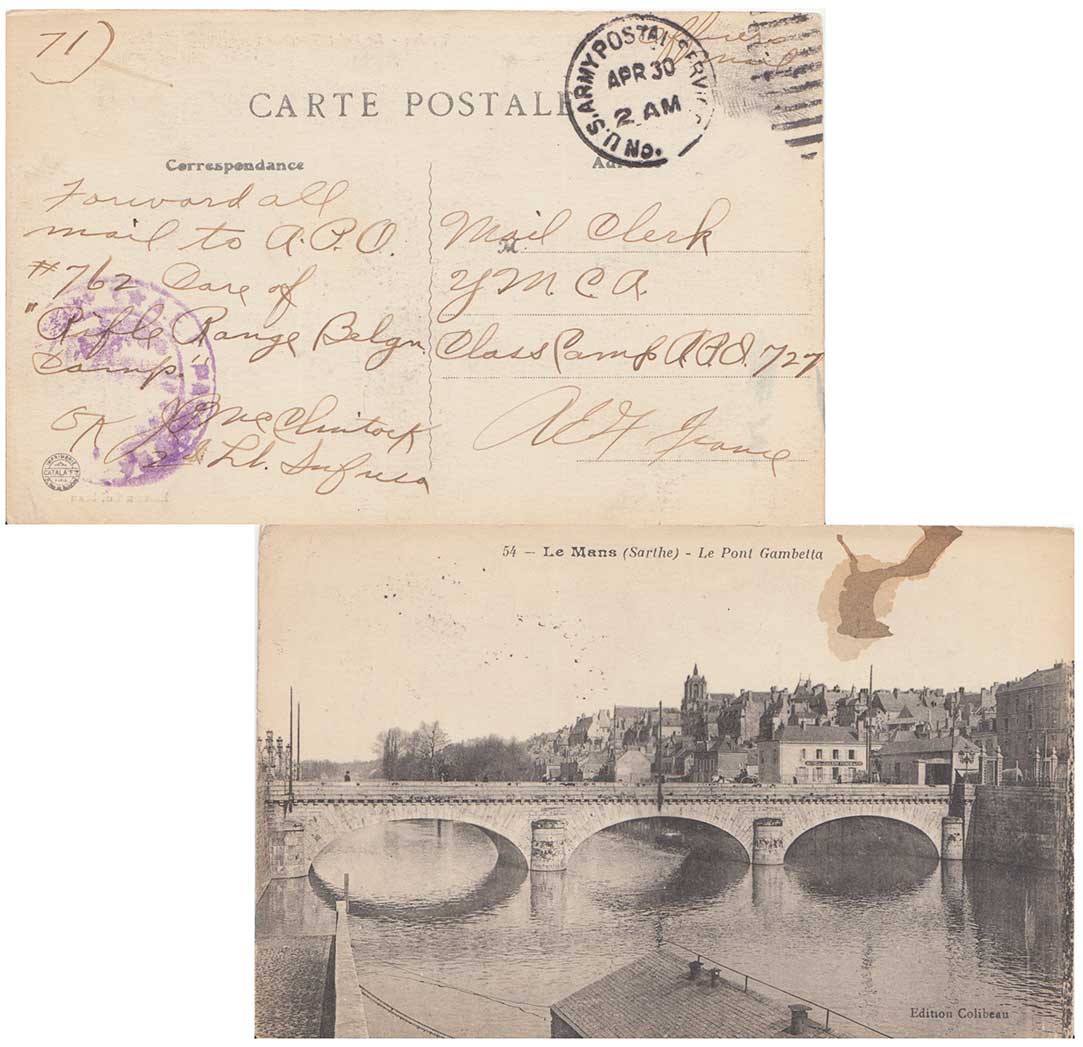 71)
Officers
mail
U.S. ARMY POSTAL SERVICE
APR 30
2 AM
CARTE POSTALE
Correspondance
Forward all
mail to A.P.O.
#762 Care of
"Rifle Range Belgn
Camp."
OK J McClintock
2d Lt. Inf USA
IMPRIMERIE
CATALA
PARIS
Mail Clerk
Y M.C.A.
Class Camp A.P.O. 727
AEF France
54 – Le Mans (Sarthe) - Le Pont Gambetta
Edition Colibeau